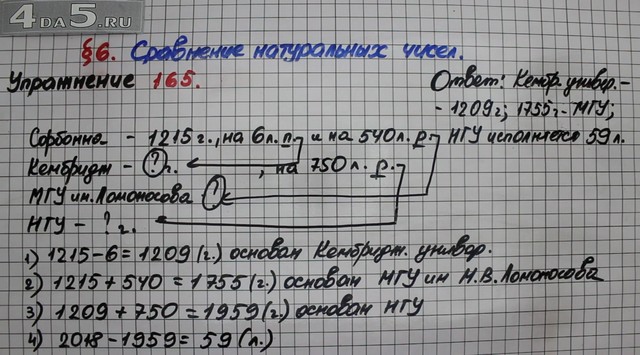 4DA5.RU
§6. Сравнение натуральных чисел.
Упражнение 165.
Ответ: Кембр. универ.-
- 1209г; 1755г-МГУ;
НГУ исполняется 59л.
Сорбонна - 1215г., на 6л. п. и на 540л. р.
Кембридж - ? г. , на 750л. р.
МГУ им. Ломоносова ?
НГУ - ? г.
1) 1215-6=1209(г.) основан Кембридж. универ.
2) 1215+540=1755(г.) основан МГУ им М.В.Ломоносова
3) 1209+750=1959(г.) основан НГУ
4) 2018-1959=59(л.)